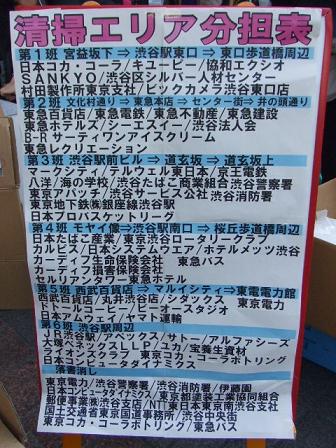 清掃エリア分担表
第1班 宮益坂下⇒渋谷駅東口⇒東口歩道橋周辺
日本コカ・コーラ/キユーピー/協和エクシオ
SANKYO/渋谷区シルバー人材センター
村田製作所東京支社/ビックカメラ渋谷東口店
第2班 文化村通り⇒東急本店⇒センター街⇒井の頭通り
東急百貨店/東急電鉄/東急不動産/東急建設
東急ホテルズ/シーエスイー/渋谷法人会
B-Rサーティワンアイスクリーム
東急レクリエーション
第3班 渋谷駅前ビル⇒道玄坂⇒道玄坂上
マークシティ/テルウェル東日本/京王電鉄
八洋/海の学校/渋谷たばこ商業組合渋谷警察署
東京アパッチ/渋谷サービス公社 渋谷消防署
東京地下鉄㈱銀座線渋谷駅
日本プロバスケットリーグ
第4班 モヤイ像⇒渋谷駅南口⇒桜丘歩道橋周辺
日本たばこ産業/東京渋谷ロータリークラブ
カルピス/日本システムウエア/ホテルメッツ渋谷
カーディフ生命保険会社 東急バス
カーディフ損害保険会社
セルリアンタワー東急ホテル
第5班 西武百貨店⇒マルイシティ⇒東電電力館
西武百貨店/丸井渋谷店/シダックス 東京電力
ドトールコーヒー/ビーオースタジオ
日本アムウェイ/ヤマト運輸
第6班 渋谷駅周辺
JR渋谷駅/アペックス/サトー/アルファシーズ
大塚ベネックスLLP/ユカ/宝養生資材
ライオンズクラブ/東京コカ・コーラボトリング
日本コンピュータダイナミクス
落書消し
東京電力/渋谷警察署/渋谷消防署/伊藤園
日本コンピュータダイナミクス/東京都塗装工業協同組合
郵便事業㈱渋谷支店/NTT東日本東京南渋谷支店
国土交通省東京国道事務所/渋谷中央街
東京コカ・コーラボトリング/東急バス